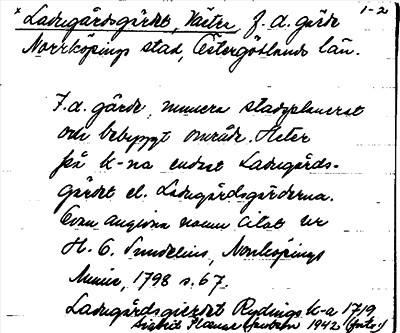 x Ladugårdsgärdet, Västra, f. d. gärde 1-2
Norrköpings stad, Östergötlands län.
F. d. gärde, numera stadsplanerat
och bebyggt område. Heter
på k-na endast Ladugårds-
gärdet el. Ladugårdsgärderna.
Ovan angivna namn citat ur
H. O. Sundelius, Norrköpings
Minne, 1798 s. 67.
Ladugårdsgierdet Rydings k-a 1719
1942